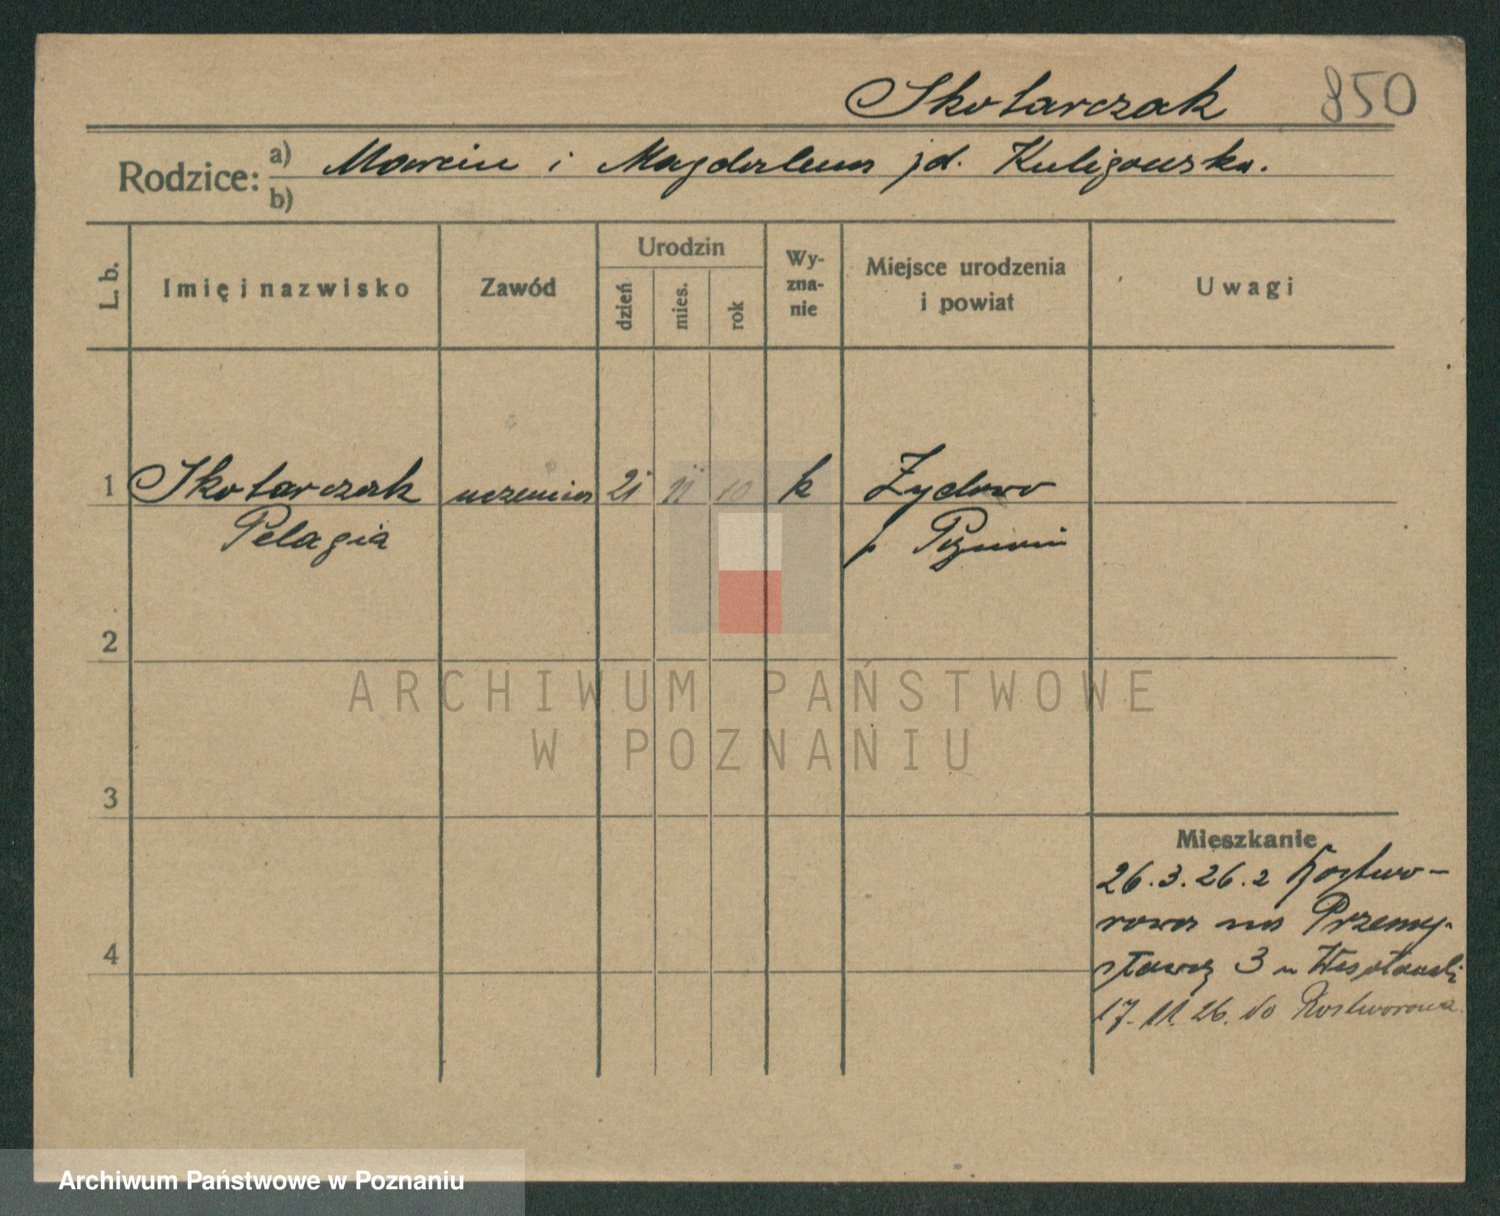 Skotarczak 850
Rodzice: a) Marcin i Magdalena jd. Kuligowska.
b)
L. b. Imię i nazwisko Zawód Urodzin dzień mies. rok Wyznanie Miejsce urodzenia i powiat Uwagi
1 Skotarczak uczenica 21 11 10 k Żydowo
Pelagia p. Poznań
2
ARCHIWUM PAŃSTWOWE
W POZNANIU
3
Mieszkanie
26.3.26. z Rostwo-
rowa na Przemy-
4 sławą 3 u
17.11.26. do Rostworowa.
Archiwum Państwowe w Poznaniu